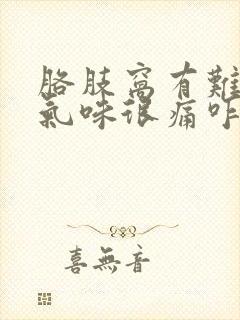 胳肢窩有難
氣味很痛咋
喜無音